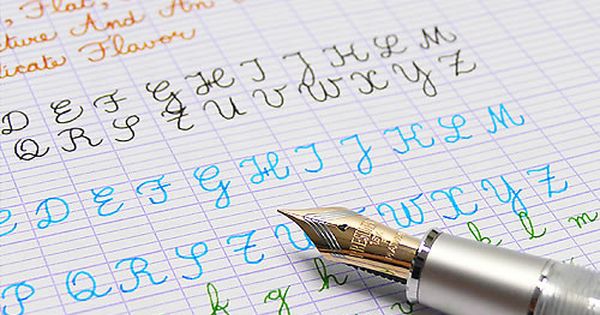 Flat,
And An
Flavor
D E F G H I J K L M
Q R S T U V W X Y Z
D E F G H I J K L M
P Q R S T U W X Y Z
g h k l m